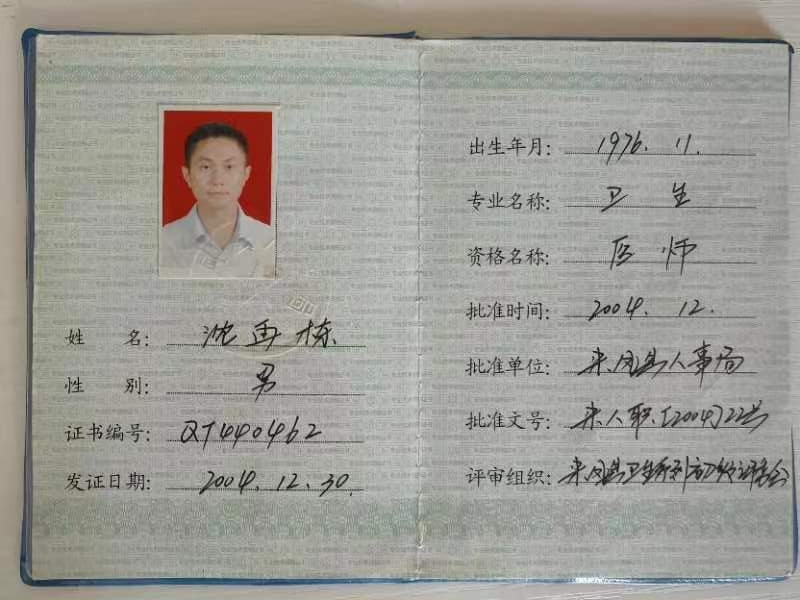 姓 名: 沈再栋
性 别: 男
证书编号: QT440462
发证日期: 2004.12.30.
出生年月: 1976.11.
专业名称: 卫生
资格名称: 医师
批准时间: 2004.12.
批准单位: 来凤县人事局
批准文号: 来人职[2004]22号
评审组织: 来凤县卫生系列初级评委会